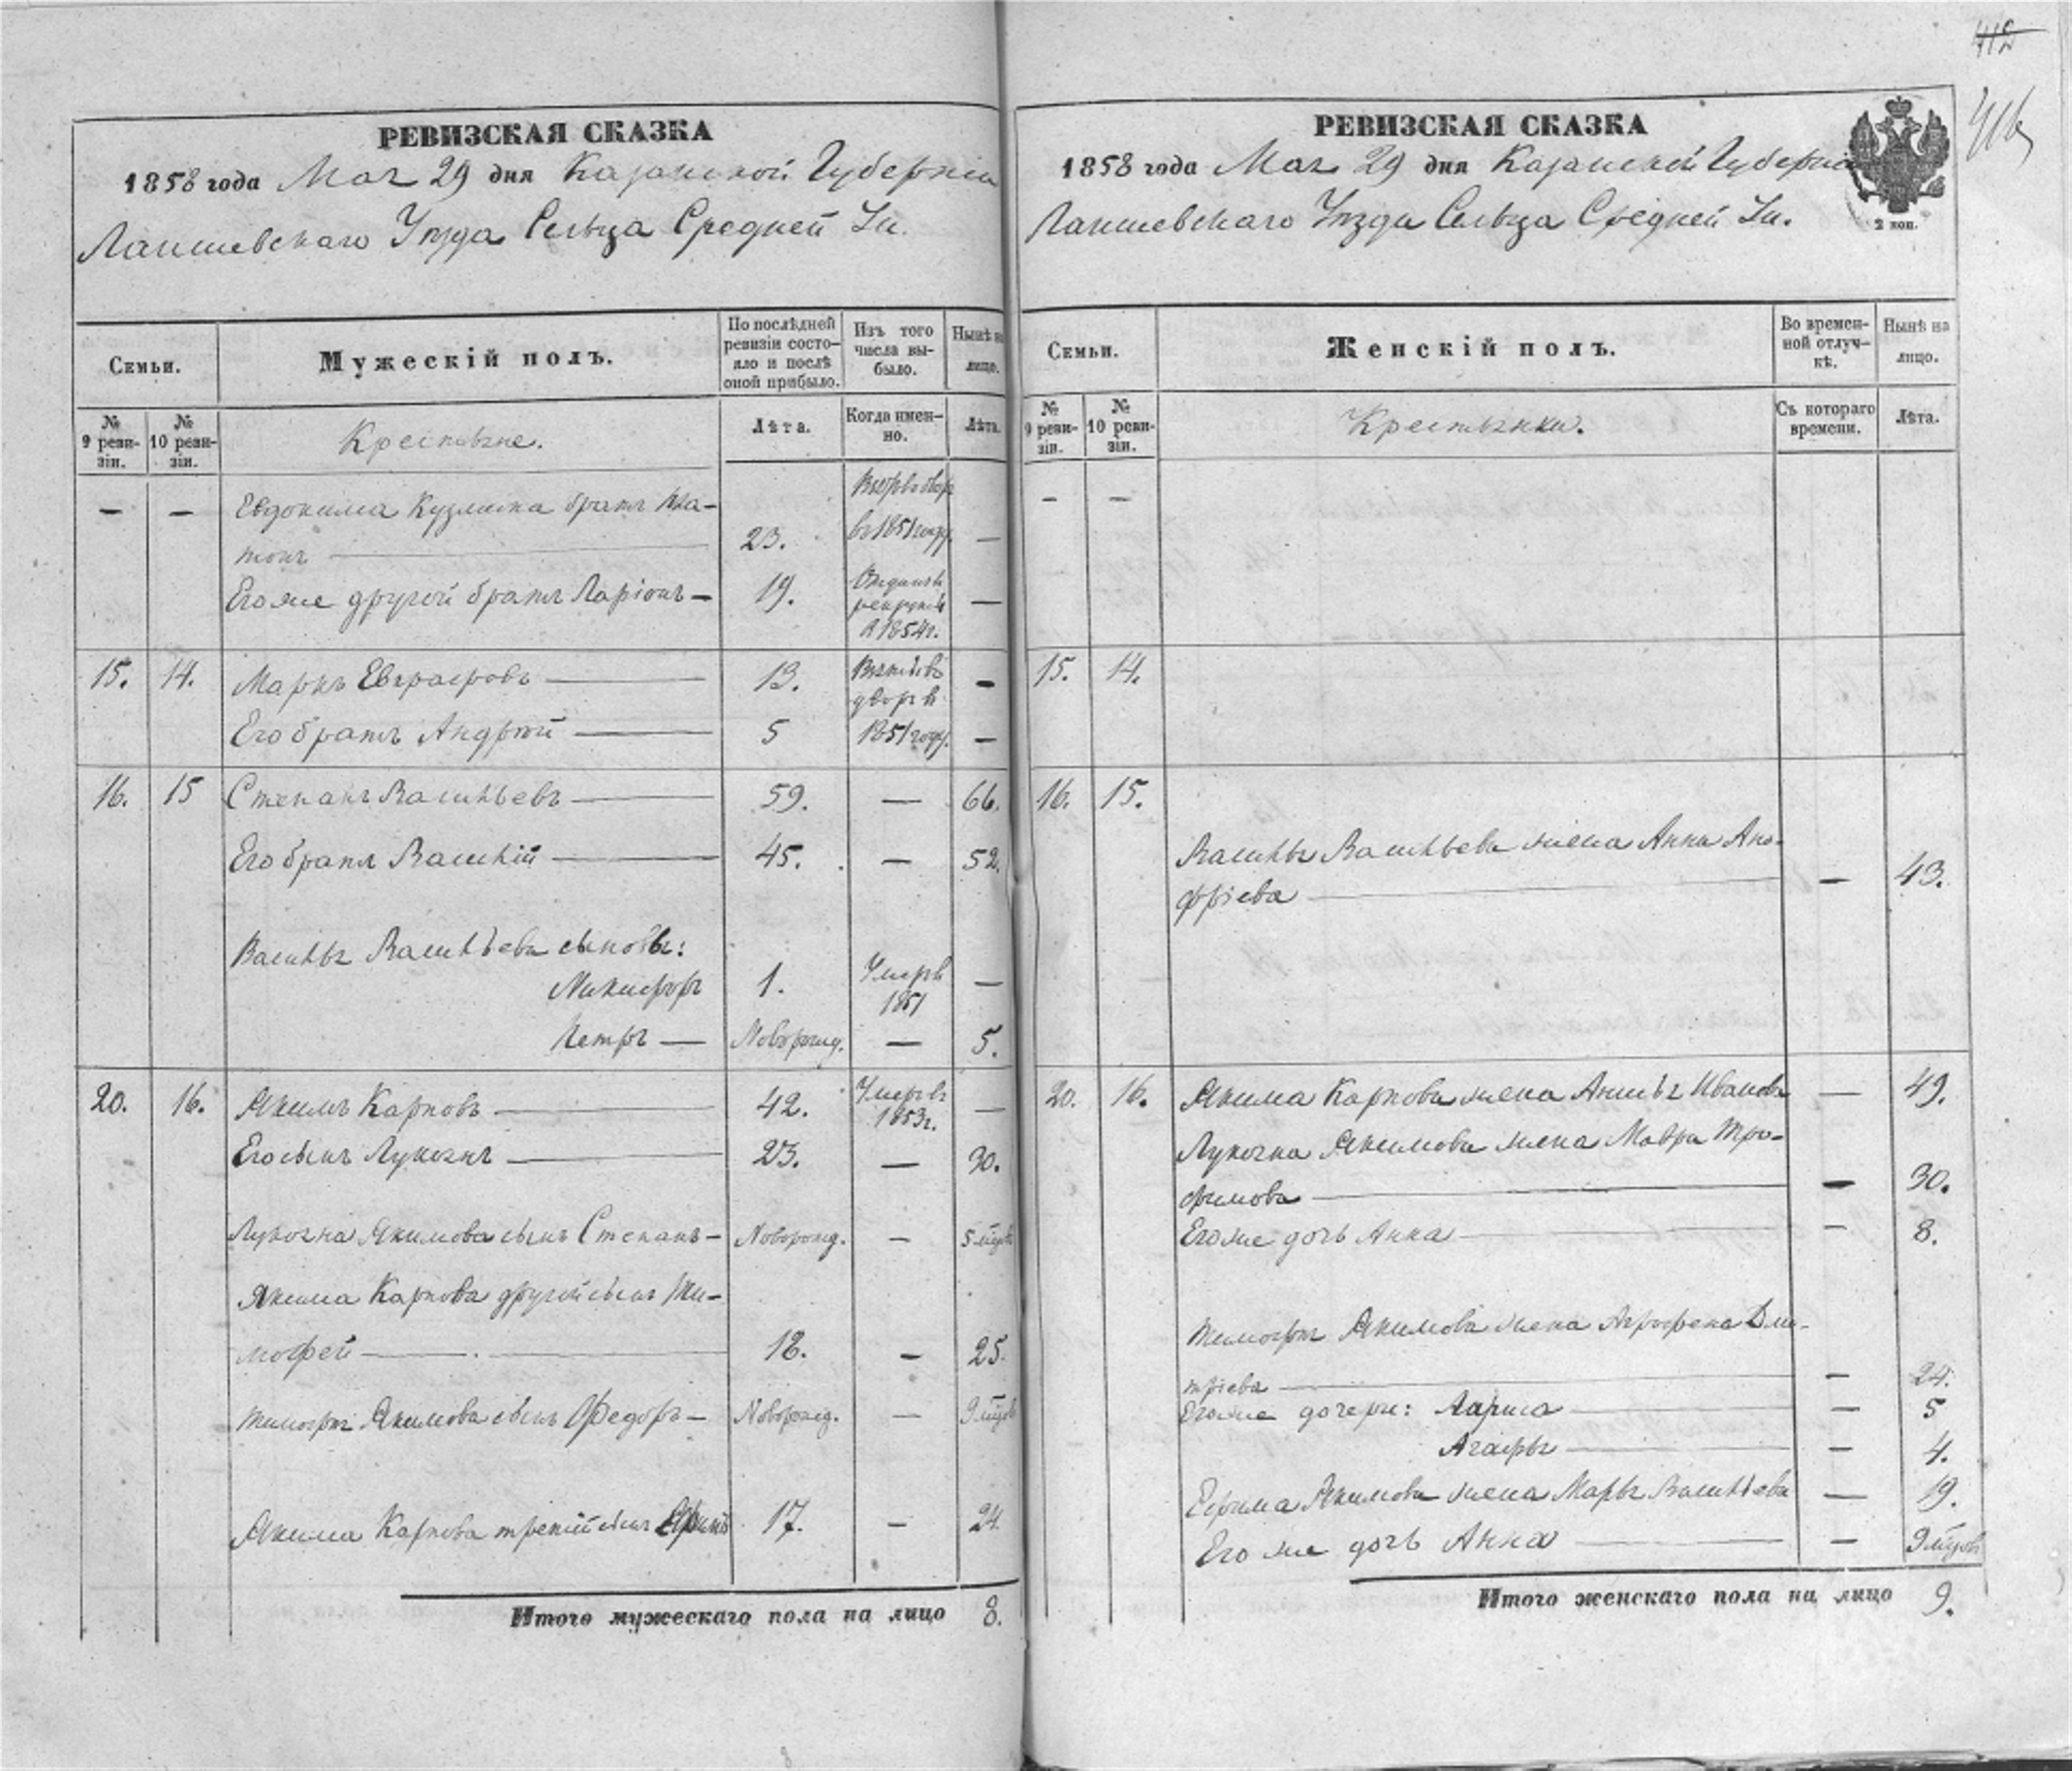 412
416
РЕВИЗСКАЯ СКАЗКА
1858 года Мая 29 дня Казанской Губерніи
Лаишевскаго Уѣзда Сельца Средней Ін.
Семьи.
Мужескій полъ.
По послѣдней ревизіи состояло и послѣ оной прибыло.
Изъ того числа выбыло.
Нынѣ на лицо.
№ 9 ревизіи.
№ 10 ревизіи.
Крестьяне.
Лѣта.
Когда именно.
Лѣта.
— — Евдокима Кузмина братъ Пла-
тонъ — 23. в 1851 году —
Его же другой братъ Ларіонъ — 19. Отданъ в рекруты в 1854 г. —
15. 14. Маркъ Евграфовъ — 13. Взятъ во —
дворъ в
Его братъ Андрей — 5 1851 году. —
16. 15 Степанъ Васильевъ — 59. — 66.
Его братъ Василій — 45. — 52.
Василья Васильева сыновья:
Никифоръ 1. Умеръ 1851 —
Петръ — Новорожд. — 5.
20. 16. Якимъ Карповъ — 42. Умеръ в 1853 г. —
Его сынъ Лукоянъ — 23. — 30.
Лукояна Якимова сынъ Степанъ — Новорожд. — 5 мѣсяц
Якима Карпова другой сынъ Ти-
мофей — 18. — 25.
Тимофея Якимова сынъ Федоръ — Новорожд. — 9 мѣсяц
Якима Карпова третій сынъ Ефимъ 17. — 24.
Итого мужескаго пола на лицо 8.
РЕВИЗСКАЯ СКАЗКА
1858 года Мая 29 дня Казанской Губерніи
Лаишевскаго Уѣзда Сельца Средней Ін.
2 коп.
Семьи.
Женскій полъ.
Во временной отлучкѣ.
Нынѣ на лицо.
№ 9 ревизіи.
№ 10 ревизіи.
Крестьянки.
Съ котораго времени.
Лѣта.
— —
15. 14.
16. 15.
Василья Васильева жена Анна Ано-
фріева — — 43.
20. 16. Якима Карпова жена Анисья Иванова — 49.
Лукояна Якимова жена Мавра Тро-
фимова — — 30.
Его же дочь Анна — — 8.
Тимофея Якимова жена Аграфена Дми-
тріева — — 24.
Его же дочери: Лариса — — 5
Агафья — — 4.
Ефима Якимова жена Марья Васильева — 19.
Его же дочь Анна — — 9 мѣсяц
Итого женскаго пола на лицо 9.